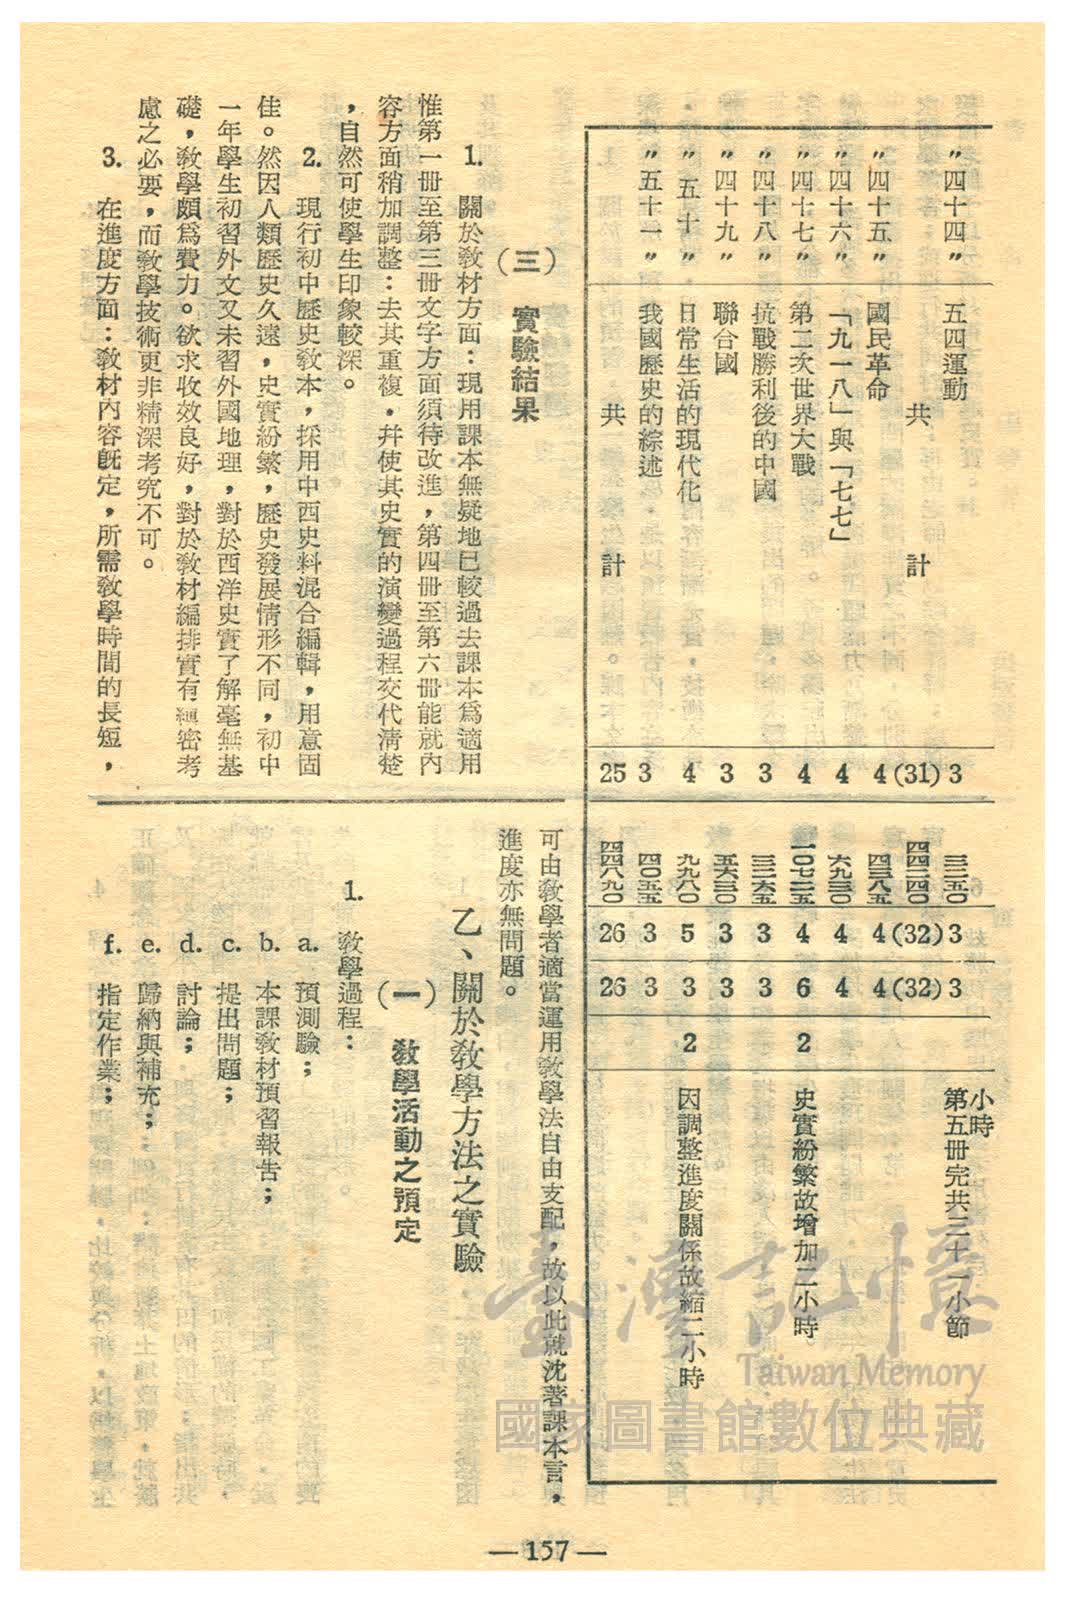 〃四十四〃　五四運動　3　三三五〇　3　3　小時　第五冊完共三十一小節
共計　(31)　四四二四〇　(32)　(32)
〃四十五〃　國民革命　4　四三八五　4　4
〃四十六〃　「九一八」與「七七」　4　六九三〇　4　4
〃四十七〃　第二次世界大戰　4　一〇七二五　4　6　2　史實紛繁故增加二小時
〃四十八〃　抗戰勝利後的中國　3　三三六五　3　3
〃四十九〃　聯合國　3　五六三〇　3　3
〃五十〃　日常生活的現代化　4　九九八〇　5　3　2　因調整進度關係故縮二小時
〃五十一〃　我國歷史的綜述　3　四〇五五　3　3
共計　25　四四八九〇　26　26
(三)　實驗結果
1. 關於教材方面：現用課本無疑地已較過去課本爲適用
惟第一冊至第三冊文字方面須待改進，第四冊至第六冊能就內
容方面稍加調整：去其重複，幷使其史實的演變過程交代清楚
，自然可使學生印象較深。
2. 現行初中歷史教本，採用中西史料混合編輯，用意固
佳。然因人類歷史久遠，史實紛繁，歷史發展情形不同，初中
一年學生初習外文又未習外國地理，對於西洋史實了解毫無基
礎，教學頗爲費力。欲求收效良好，對於教材編排實有縝密考
慮之必要，而教學技術更非精深考究不可。
3. 在進度方面：教材內容旣定，所需教學時間的長短，
可由教學者適當運用教學法自由支配，故以此就沈著課本言，
進度亦無問題。
乙、關於教學方法之實驗
(一)　教學活動之預定
1. 教學過程：
a. 預測驗；
b. 本課教材預習報告；
c. 提出問題；
d. 討論；
e. 歸納與補充；
f. 指定作業；
—157—
臺灣記憶
Taiwan Memory
國家圖書館數位典藏